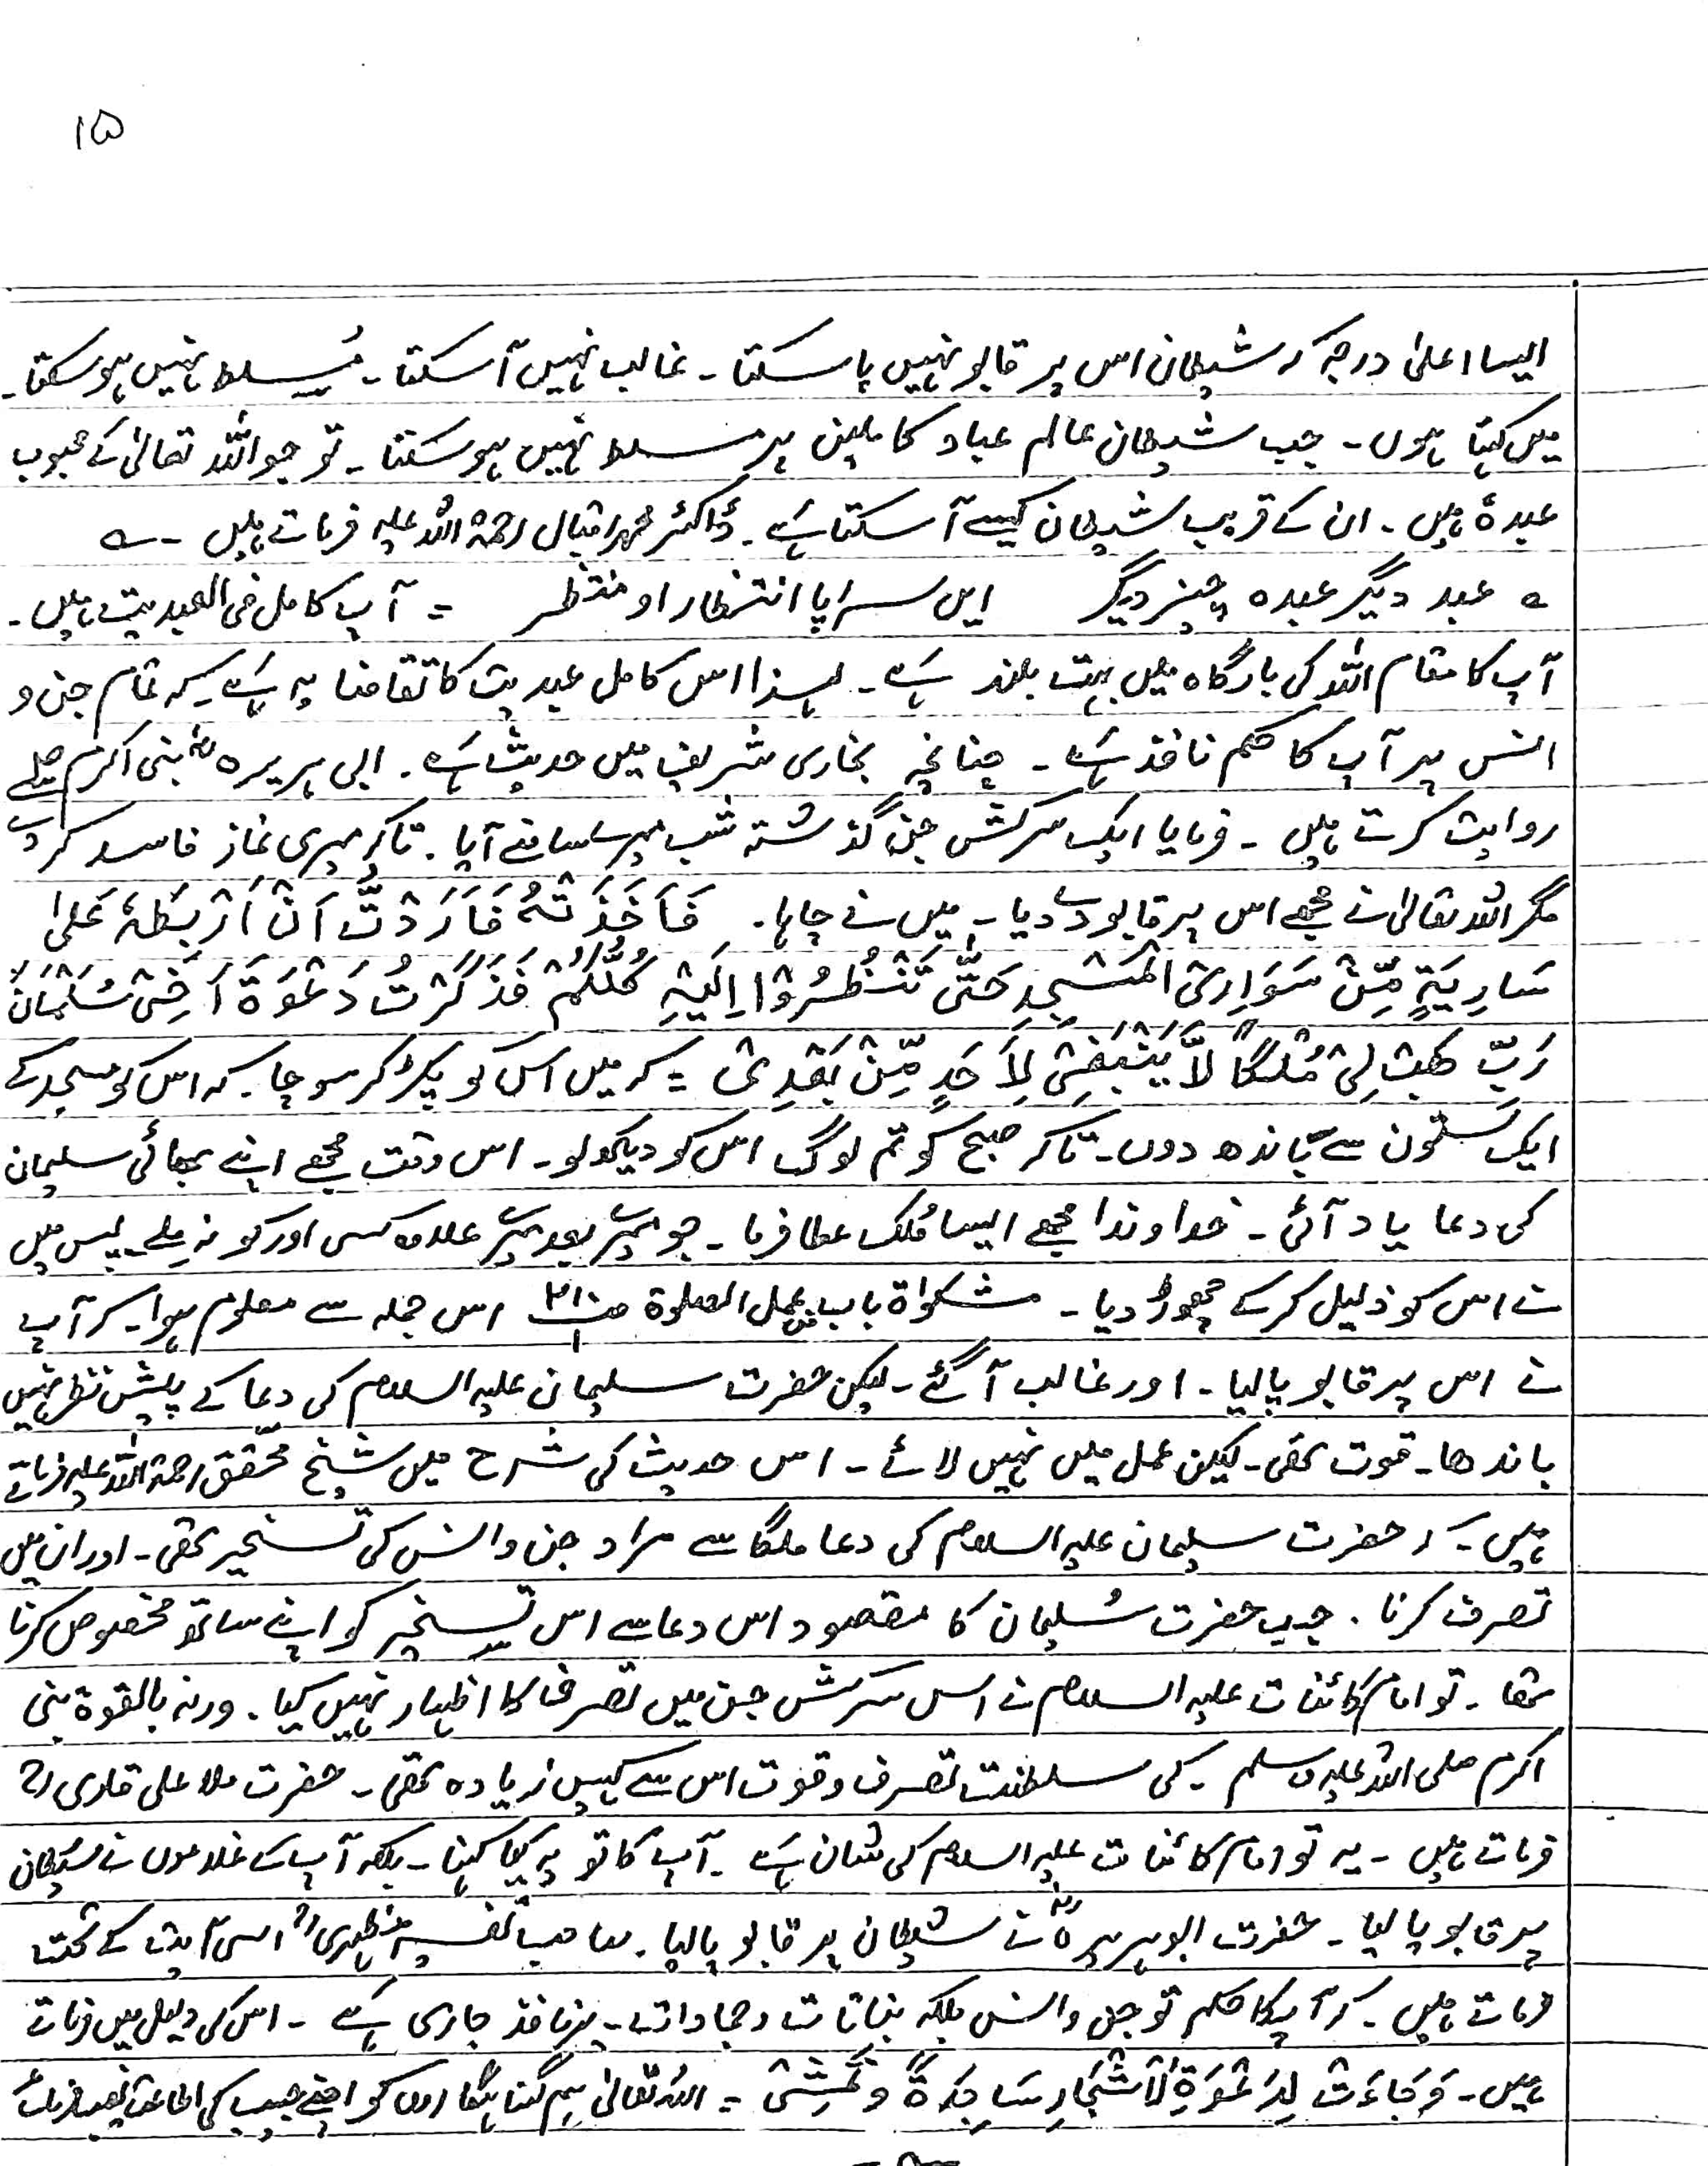 ۱۵
ایسا اعلیٰ درجہ کہ شیطان اس پر قابو نہیں پا سکتا ۔ غالب نہیں آ سکتا ۔ مُسلط نہیں ہو سکتا ۔
میں کہتا ہوں ۔ جب شیطان عالم عباد کاملین پر مسلط نہیں ہو سکتا ۔ تو جو اللہ تعالیٰ کے محبوب
عبدہٗ ہیں ۔ ان کے قریب شیطان کیسے آ سکتا ہے ۔ ڈاکٹر محمد اقبال رحمۃ اللہ علیہ فرماتے ہیں ۔
؎ عبد دیگر عبدہ چیزے دیگر ایں سراپا انتظار او منتظر = آپ کامل فی العبدیت ہیں ۔
آپ کا مقام اللہ کی بارگاہ میں بہت بلند ہے ۔ لہذا اس کامل عبدیت کا تقاضا یہ ہے ۔ کہ تمام جن و
انس پر آپ کا حکم نافذ ہے ۔ چنانچہ بخاری شریف میں حدیث ہے ۔ ابی ہریرہ رضؓ نبی اکرم صلے
روایت کرتے ہیں ۔ فرمایا ایک سرکش جن گذشتہ شب میرے سامنے آیا ۔ تاکہ میری نماز فاسد کر دے
مگر اللہ تعالیٰ نے مجھے اس پر قابو دے دیا ۔ میں نے چاہا ۔ فَاَخَذْتُہٗ فَاَرَدْتُّ اَنْ اَرْبِطَہٗ عَلیٰ
سَارِیَۃٍ مِّنْ سَوَارِی الْمَسْجِدِ حَتّٰی تَنْظُرُوْا اِلَیْہِ کُلُّکُمْ فَذَکَرْتُ دَعْوَۃَ اَخِیْ سُلَیْمَانَ
رَبِّ ھَبْ لِیْ مُلْکًا لَّا یَنْبَغِیْ لِاَحَدٍ مِّنْ بَعْدِیْ = کہ میں اس کو پکڑ کر سوچا ۔ کہ اس کو مسجد کے
ایک ستون سے باندھ دوں ۔ تاکہ صبح کو تم لوگ اس کو دیکھ لو ۔ اس وقت مجھے اپنے بھائی سلیمان
کی دعا یاد آئی ۔ خداوندا مجھے ایسا مُلک عطا فرما ۔ جو میرے بعد میرے علاوہ کسی اور کو نہ ملے ۔ پس میں
نے اس کو ذلیل کر کے چھوڑ دیا ۔ مشکواۃ باب عمل الصلوۃ اس جملہ سے معلوم ہوا ۔ کہ آپ
نے اس پر قابو پا لیا ۔ اور غالب آ گئے ۔ لیکن حضرت سلیمان علیہ السلام کی دعا کے پیش نظر نہیں
باندھا ۔ قوت تھی ۔ لیکن عمل میں نہیں لائے ۔ اس حدیث کی شرح میں شیخ محقق رحمۃ اللہ علیہ فرماتے
ہیں ۔ کہ حضرت سلیمان علیہ السلام کی دعا ملکا سے مراد جن و انس کی تسخیر تھی ۔ اور ان میں
تصرف کرنا ۔ جب حضرت سُلیمان کا مقصود اس دعا سے اس تسخیر کو اپنے ساتھ مخصوص کرنا
تھا ۔ تو امام کائنات علیہ السلام نے اس سرکش جن میں تصرف کا اظہار نہیں کیا ۔ ورنہ بالقوۃ نبی
اکرم صلی اللہ علیہ وسلم ۔ کی سلطنت تصرف و قوت اس سے کہیں زیادہ تھی ۔ حضرت ملا علی قاری رح
فرماتے ہیں ۔ یہ تو امام کائنات علیہ السلام کی شان ہے ۔ آپ کا تو یہ کیا کہنا ۔ بلکہ آپ کے غلاموں نے شیطان
پر قابو پا لیا ۔ حضرت ابو ہریرہ رضؓ نے شیطان پر قابو پا لیا ۔ صاحب تفسیر مظہری رح اسی آیت کے تحت
فرماتے ہیں ۔ کہ آپ کا حکم تو جن و انس بلکہ نباتات و جمادات ۔ پر نافذ جاری ہے ۔ اس کی دلیل میں فرماتے
ہیں ۔ وَجَاءَتْ لِدَعْوَۃِ الْاَشْجَارِ سَاجِدَۃً وَّ تَمْشِیْ = اللہ تعالیٰ ہم گناہگاروں کو اپنے حبیب کی اطاعت